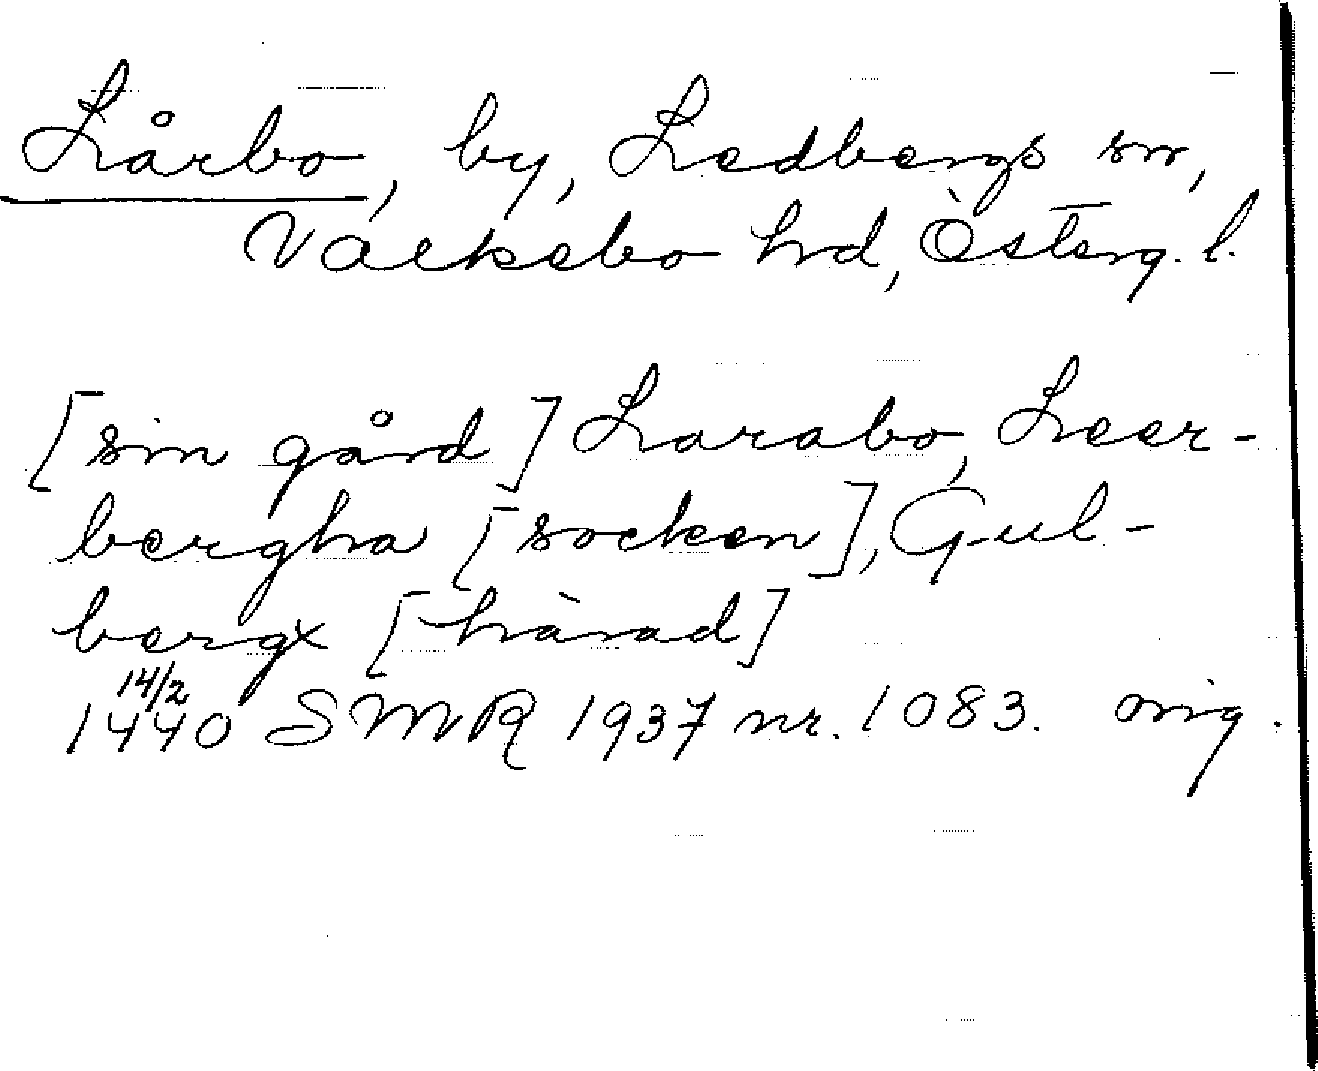 Lårbo, by, Ledbergs sn,
Valkebo hd, Österg. l.
[sin gård] Larabo, Leer-
bergha [socken], Gul-
bergx [härad]
14/2
1440 SMR 1937 nr. 1083. orig.